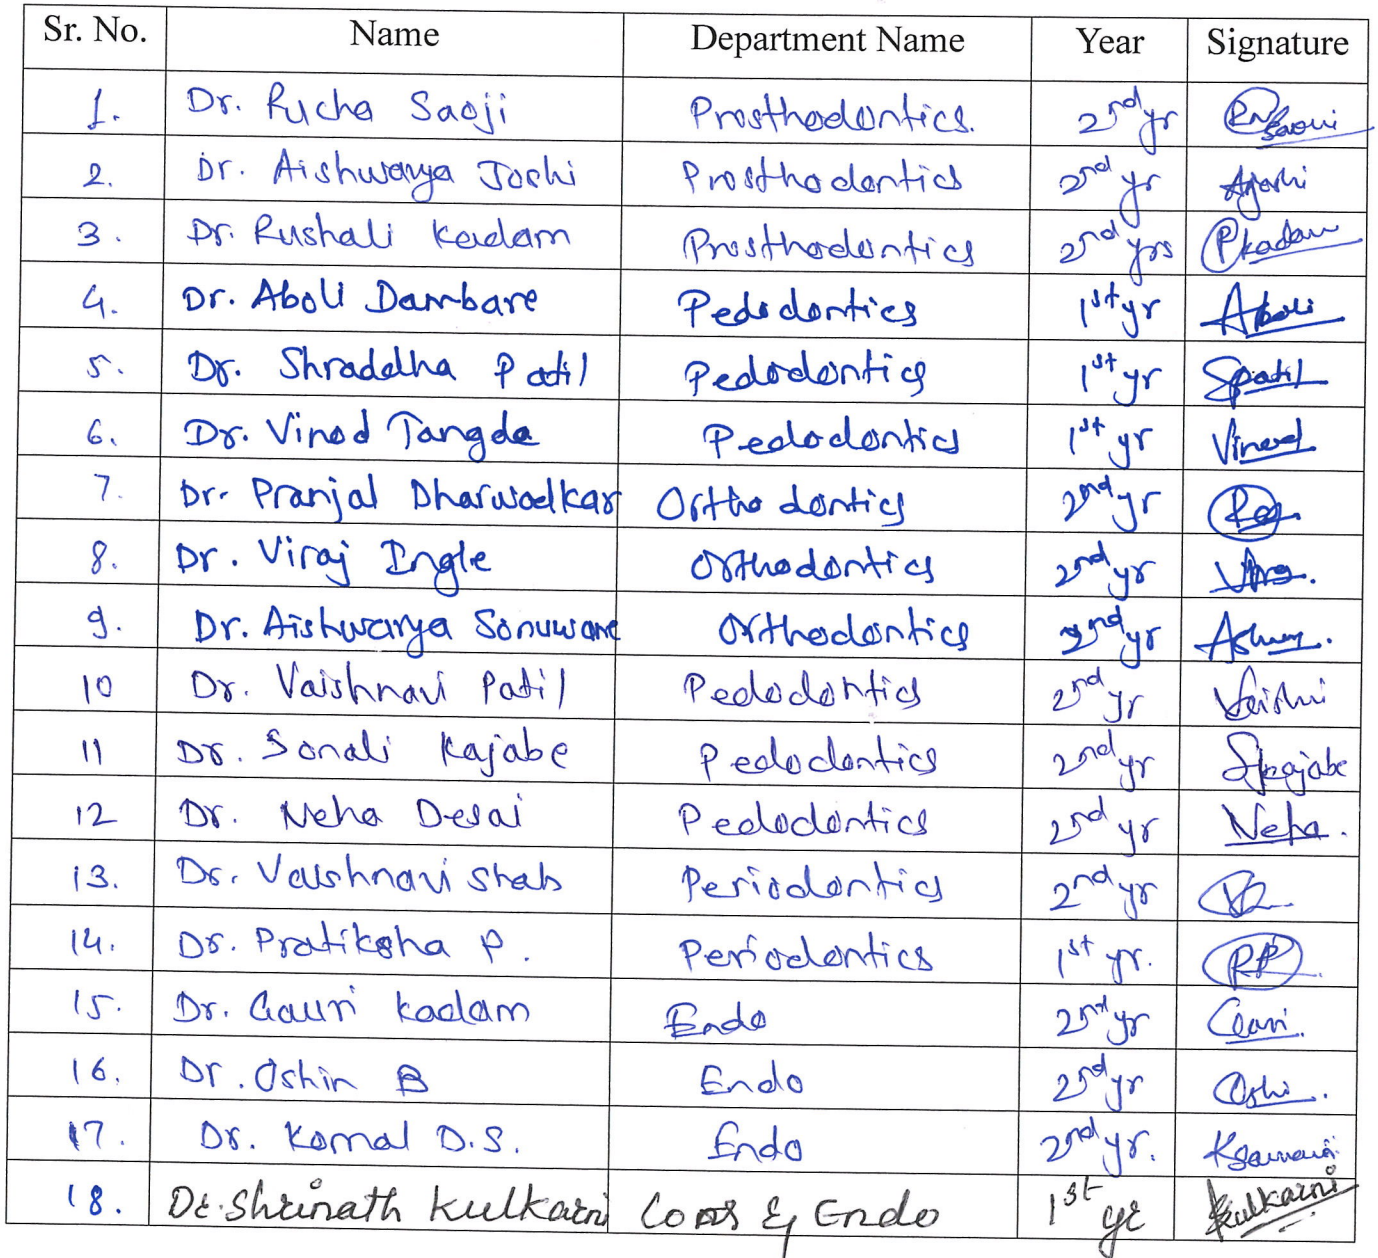 Sr. No. Name Department Name Year Signature
1. Dr. Rucha Saoji Prosthodontics. 2nd yr
2. Dr. Aishwarya Joshi Prosthodontics 2nd yr Ajoshi
3. Dr. Rushali Kadam Prosthodontics 2nd yrs Rkadam
4. Dr. Aboli Dambare Pedodontics 1st yr Aboli
5. Dr. Shraddha Patil Pedodontics 1st yr Spatil
6. Dr. Vinod Tangde Pedodontics 1st yr Vinod
7. Dr. Pranjal Dharwadkar Orthodontics 2nd yr
8. Dr. Viraj Ingle Orthodontics 2nd yr
9. Dr. Aishwarya Sonuwane Orthodontics 2nd yr
10 Dr. Vaishnavi Patil Pedodontics 2nd yr Vaishvi
11 Dr. Sonali Kajabe Pedodontics 2nd yr Skajabe
12 Dr. Neha Desai Pedodontics 2nd yr Neha.
13. Dr. Vaishnavi Shah Periodontics 2nd yr
14. Dr. Pratiksha P. Periodontics 1st yr. PP
15. Dr. Gauri Kadam Endo 2nd yr Gauri.
16. Dr. Oshin B Endo 2nd yr Oshi.
17. Dr. Komal D.S. Endo 2nd yr.
18. Dr. Shrinath Kulkarni Cons & Endo 1st yr Kulkarni